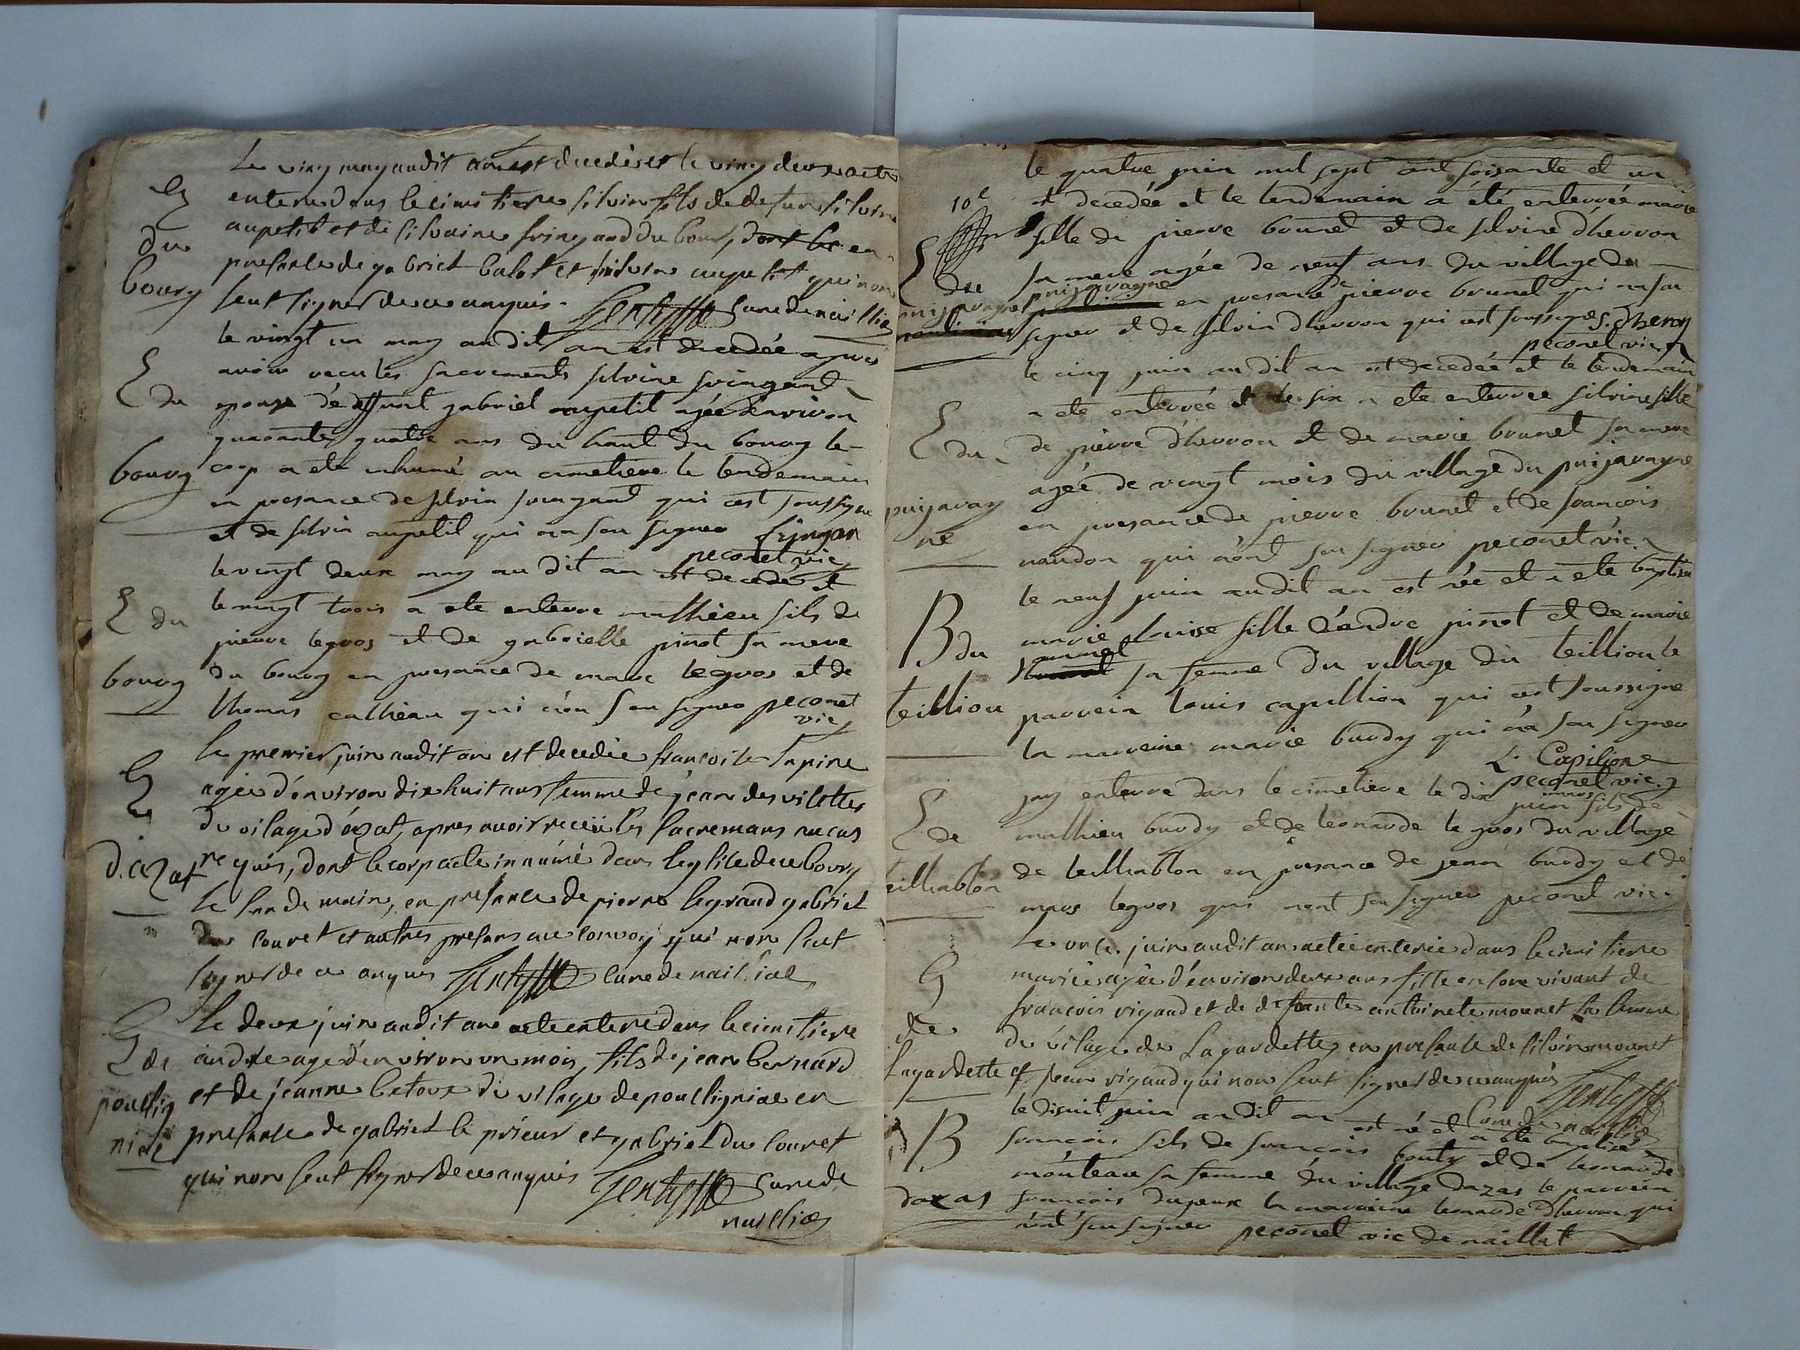 Le ving may audit an est decedé et le ving deux a eté
enteré dans le cimitiere silvin fils de defun silvin
aupetit et de silvaine fringand du bour, dont le en
presance de gabriel balot et silvin aupetit qui non
seut signer de ce anquis. curé de naillia
E
du
bourg
le vingt un may au dit an est decedée apres
avoir recu les sacrements silvine fringand
epouse de deffunt gabriel aupetit agée denviron
quarante quatre ans du haut du bourg le
corp a ete inhumé au cimetiere le lendemain
en presance de silvin fringand qui est soussigne
et de silvin aupetit qui na seu signer
peconet vic
E du
bourg
le vingt deux may au dit an est decedé et
le vingt trois a ete enterre mathieu fils de
pierre legros et de gabrielle pinot sa mere
du bourg en presance de marc legros et de
thomas qui n'on seu signer peconet
vic
E du
bourg
le premier juin audit an est decedée francoise lapine
agée d'environ dix huit ans femme de jean des vilettes
du vilage d'ezat, apres avoir receu les sacremans
requis, dont le corp a eté innumé dans leglise de ce bourg
le lan demain, en presance de pierre legrand gabriel
du couret et autres presans au convoy qui non seut
signer de ce anquis curé de naillat
E
d'ezat
le deux juin audit an a eté enteré dans le cimitiere
andre agé denviron un mois, fils de jean bernard
et de jeanne betoux du vilage de poulligniae en
presance de gabriel le prieur et gabriel du couret
qui non seut signer de ce anquis curé de
naillia
E de
poullig
niae
le quatre juin mil sept cent soisante et un
est decedée et le lendemain a été enterrée marie
fille de pierre brunet et de silvine dherron
sa mere agée de neuf ans du village du
puijaragne en presance de pierre brunet qui na seu
signer et de silvin dherron qui est soussigné S. dheron
peconet vic
10e
E
du
puijaragne
le cinq juin au dit an est decedée et le lendemain
a ete enterrée et le six a ete enterree silvine fille
de pierre dherron et de marie brunet sa mere
agée de vingt mois du village du puijaragne
en presance de pierre brunet et de francois
naudon qui n'ont seu signer peconet vic
E du
puijarag
ne
le neuf juin au dit an est née et a ete baptisée
marie louise fille d'andre pinot et de marie
sa femme du village du teilliou le
parrein louis capillion qui est soussigne
la marreine marie burdy qui n'a seu signer
L. Capilione
peconet vic
B du
teilliou
jay enterre dans le cimetiere le dix juin fils de
mathieu burdy et de leonarde legros du village
de teilliablon en presance de jean burdy et de
marc legros qui nont seu signer peconet vic
E de
teilliablon
Le onze juin audit an a eté enterée dans le cimitiere
marie agée d'environ deux ans fille encore vivant de
francois rigaud et de defeante antoinete mounet sa femme
du vilage de Lagardette, en presance de silvin mounet
et rigaud qui non seut signer de ce anquis
Curé de naillia
E
de
Lagardette
le dixuit juin au dit an est né et a ete baptisé
francois fils de francois bouty et de leonarde
monteau sa femme du village dazas le parrein
francois dupeux la marreine leonarde dherron qui
n'ont seu signer peconet vic de naillat
B
dazas